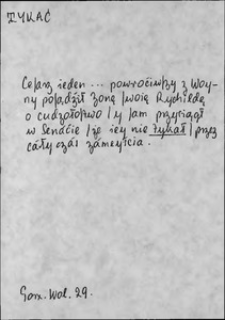 TYKAĆ
Cesarz ieden ... powrociwszy z Woy-
ny posądził żonę swoię Rychildę
o cudzołostwo / y sam przysiągł
w Senacie / że iey nie tykał / przez
cały czás zamęścia.
Gorn. Wol. 29.